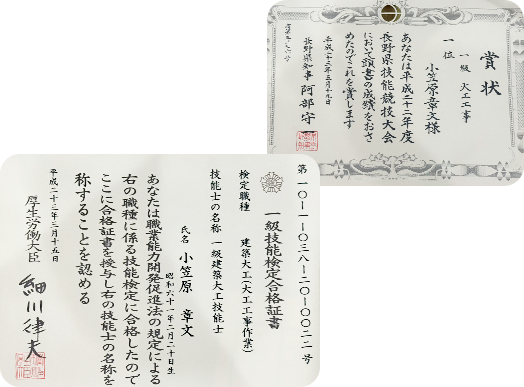 賞状
一級 大工工事
一位
小笠原章文様
あなたは平成二十二年度
長野県技能競技大会
において頭書の成績をおさ
めたのでこれを賞します
平成二十三年三月十九日
長野県知事 阿部守一
第一〇-一-〇三八-二〇-〇〇二二号
一級技能検定合格証書
検定職種 建築大工(大工工事作業)
技能士の名称 一級建築大工技能士
氏名 小笠原 章文
昭和六十一年二月二十日生
あなたは職業能力開発促進法の規定による
右の職種に係る技能検定に合格したので
ここに合格証書を授与し右の技能士の名称を
称することを認める
平成二十三年三月十五日
厚生労働大臣 細川律夫